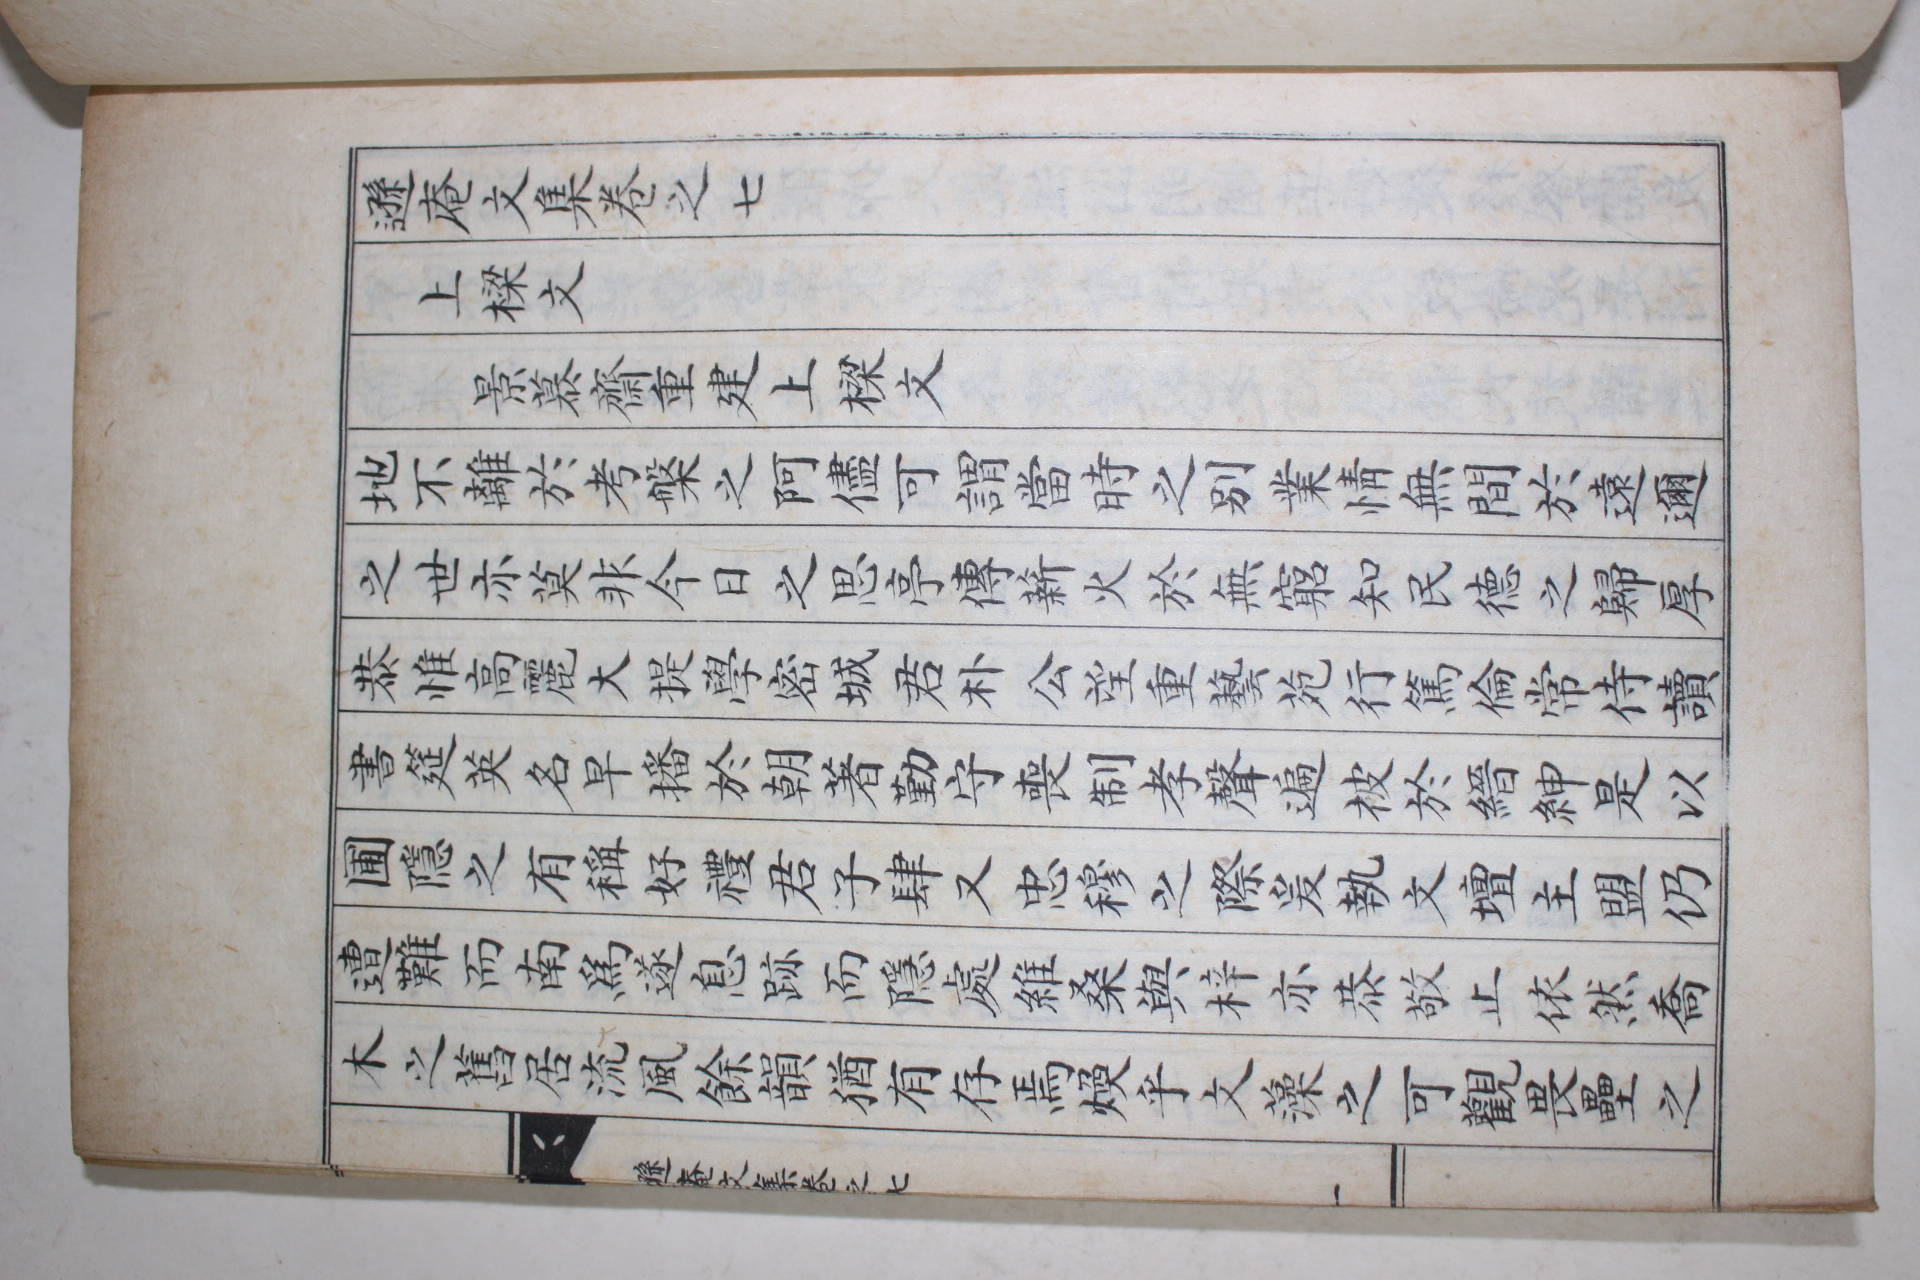 遜庵文集卷之七
上樑文
景慕齋重建上樑文
地不離於考槃之阿儘可謂當時之別業情無間於遠邇
之世亦莫非今日之思亭傳薪火於無窮知民德之歸厚
恭惟高麗大提學密城君朴公望重藝苑行篤倫常侍讀
書筵英名早播於朝著勤守喪制孝聲遍被於縉紳是以
圃隱之有稱好禮君子肆又忠穆之際爰執文壇主盟仍
遭難而南爲遂息跡而隱處維桑與梓亦恭敬止依然喬
木之舊居流風餘韻猶有存焉煥乎文藻之可觀畏壘之
遜庵文集卷之七
一